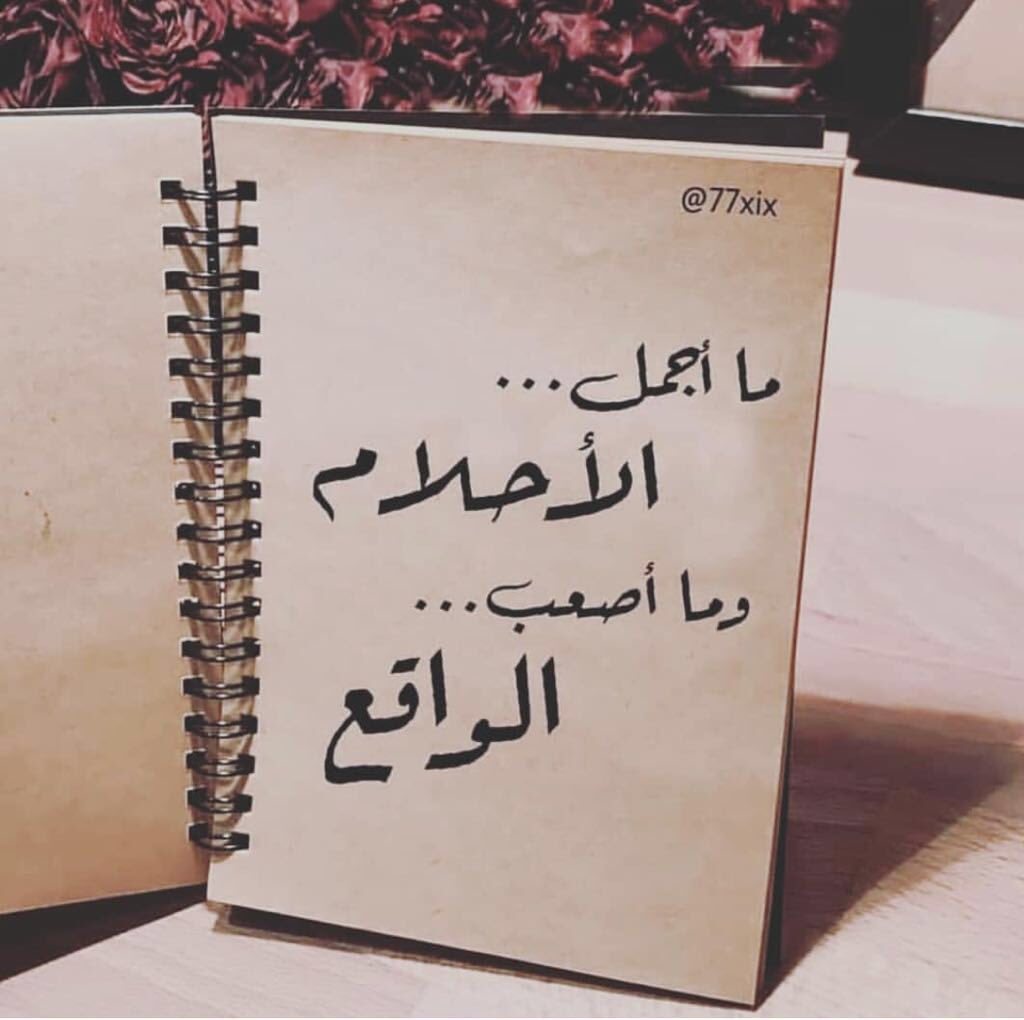 @77xix
ما أجمل...
الأحلام
وما أصعب...
الواقع